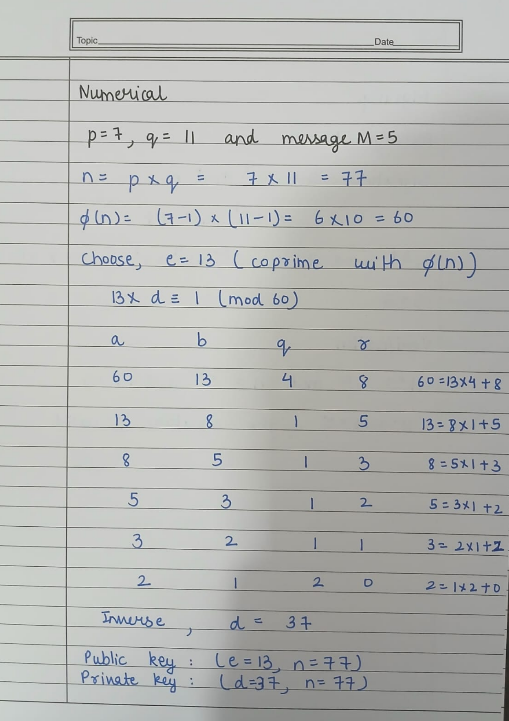 Topic Date
Numerical
p=7, q= 11 and message M=5
n= p×q = 7×11 = 77
ϕ(n)= (7-1)×(11-1)= 6×10 = 60
Choose, e= 13 (coprime with ϕ(n))
13× d ≡ 1 (mod 60)
a b q r
60 13 4 8 60=13×4+8
13 8 1 5 13=8×1+5
8 5 1 3 8=5×1+3
5 3 1 2 5=3×1+2
3 2 1 1 3=2×1+1
2 1 2 0 2=1×2+0
Inverse, d = 37
Public key : (e=13, n=77)
Private key : (d=37, n=77)